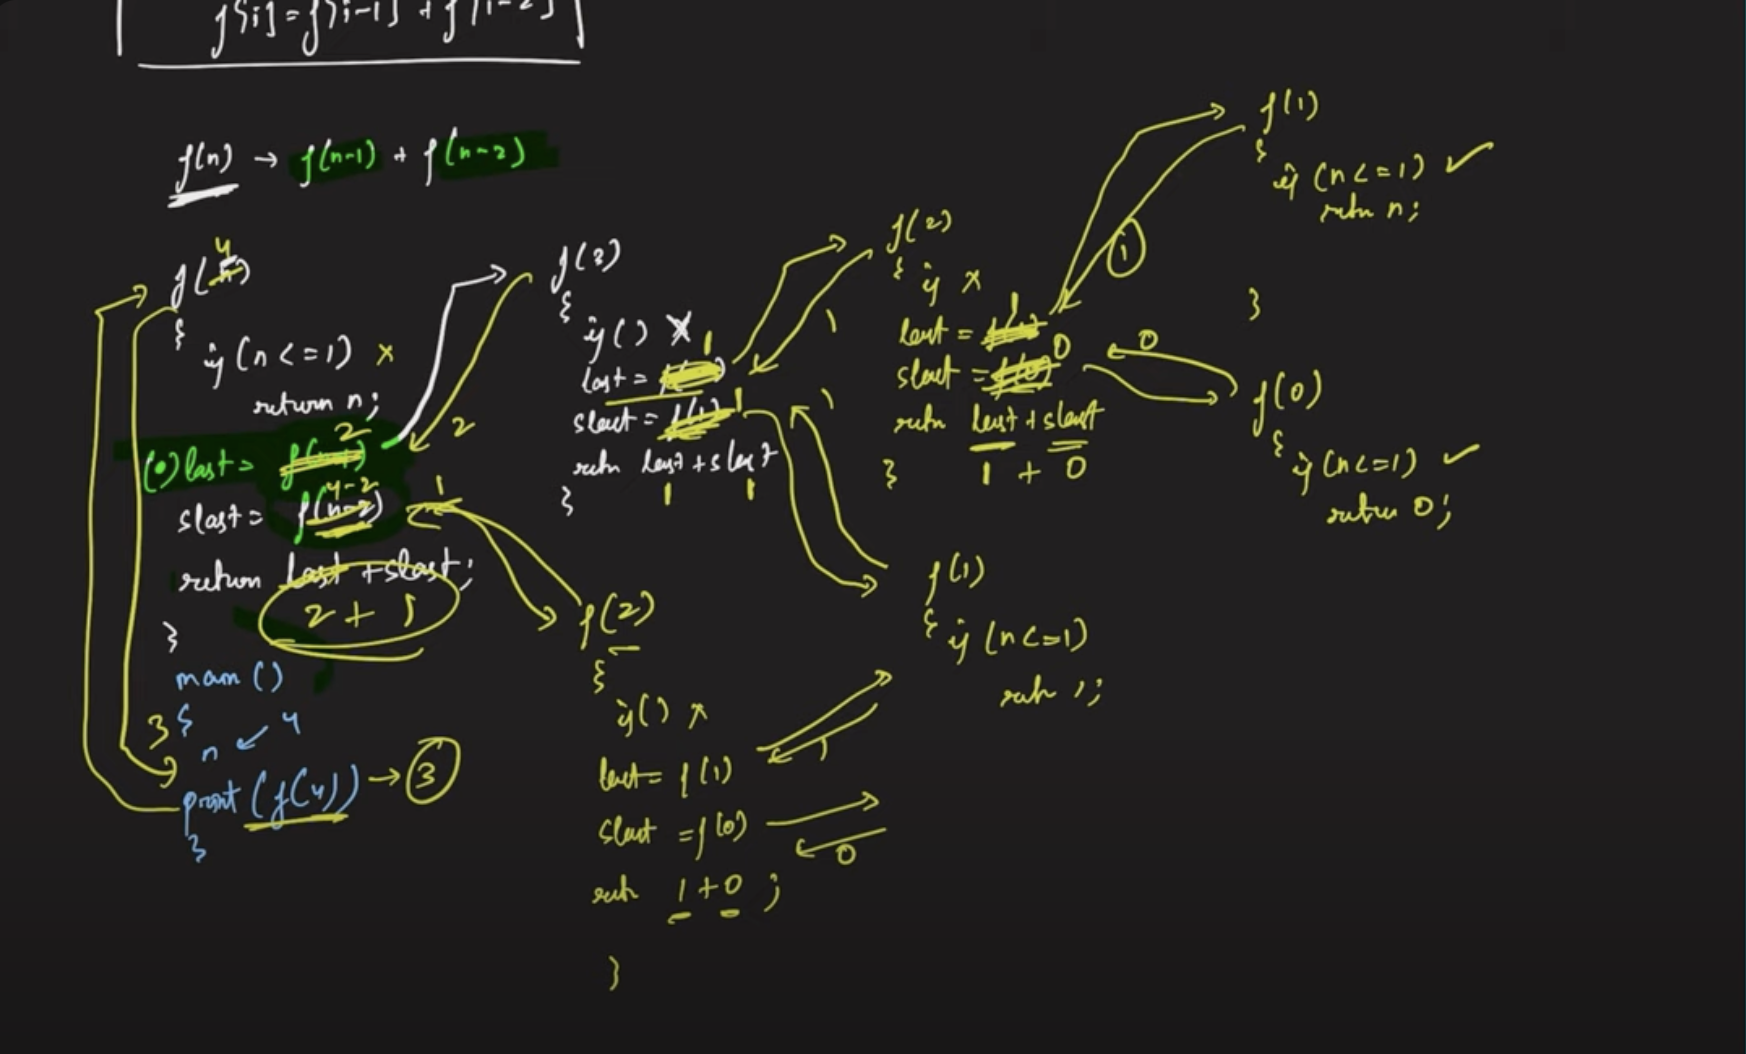 f[i] = f[i-1] + f[i-2]
f(n) → f(n-1) + f(n-2)
4
f(n)
{
if (n <= 1) x
return n;
2
(•) last = f(n-1)
4-2
slast = f(n-2)
return last + slast;
2 + 1
}
main ()
3 {
n ← 4
print (f(4)) → 3
}
2
1
f(3)
{
if () x
1
last =
slast = f(1) 1
retn last + slast
1 1
}
1
1
f(2)
{ if x
1
last = f(1)
slast = f(0) 0
retn last + slast
1 + 0
}
1
0
f(1)
{
if (n <= 1) ✓
retn n;
}
f(0)
{
if (n <= 1) ✓
return 0;
f(1)
{ if (n <= 1)
retn 1;
f(2)
{
if () x
last = f(1)
1
slast = f(0)
0
retn 1 + 0 ;
}